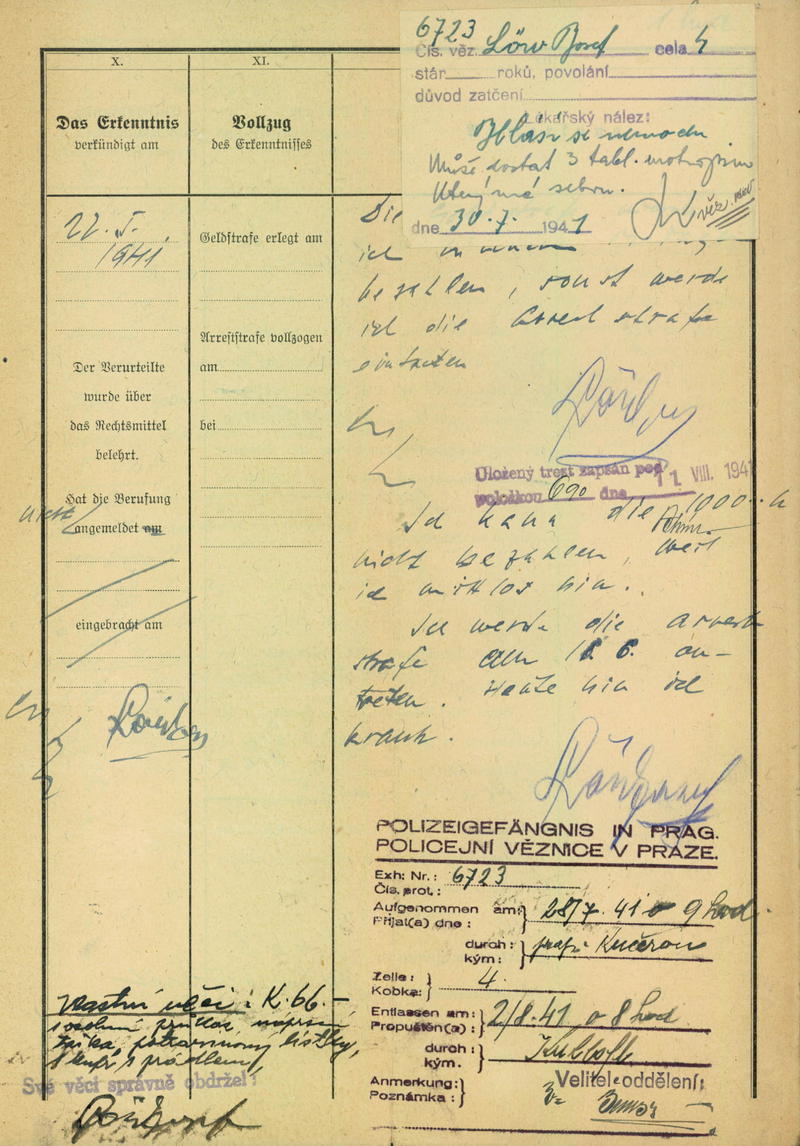 6723
Čís. věz. Löw Josef cela 4
stár roků, povolání
důvod zatčení
Lékařský nález:
Hlásí se
Může dostat 3 tabl.
sebou.
dne 30.7. 1941
X.
Das Erkenntnis
verkündigt am
22. I.
1941
Der Verurteilte
wurde über
das Rechtsmittel
belehrt.
Hat die Berufung
nicht angemeldet am
eingebracht am
XI.
Vollzug
des Erkenntnisses
Geldstrafe erlegt am
Arreststrafe vollzogen
am
bei
Die
ich
bezahlen, sonst werde
ich die Arreststrafe
eintreten
Uložený trest zapsán pod
položkou 690 dne 11. VIII. 194
Ich kann die 1000.- K
nicht bezahlen, weil
ich mittlos bin.
Ich werde die Arrest
strafe am 6. an-
treten. Heute bin ich
krank.
POLIZEIGEFÄNGNIS IN PRAG.
POLICEJNÍ VĚZNICE V PRAZE.
Exh: Nr.: 6723
Čís. prot.:
Aufgenommen am: 28/7. 41 o 9 hod.
Přijat(a) dne:
durch: Kučerou
kým:
Zelle: 4.
Kobka:
Entlassen am: 2/8.41 o 8 hod
Propuštěn(a):
durch:
kým.
Anmerkung:
Poznámka:
Velitel oddělení:
Vlastní věci: K. 66.-
osobní průkaz, náprsní
taška, potravinový lístky,
1 kufr s prádlem
Své věci správně obdržel: